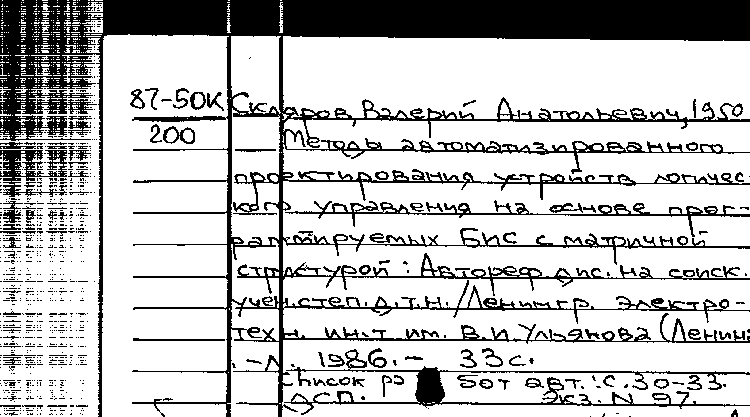 87-50К Скляров, Валерий Анатольевич, 1950
200 Методы автоматизированного
проектирования устройств логичес-
кого управления на основе прог-
раммируемых БИС с матричной
структурой : Автореф. дис. на соиск.
учен. степ. д.т.н. / Ленингр. электро-
техн. ин-т им. В.И. Ульянова (Ленина
. - Л., 1986. - 33 с.
Список работ авт.: С. 30-33.
ДСП. Экз. N 97.